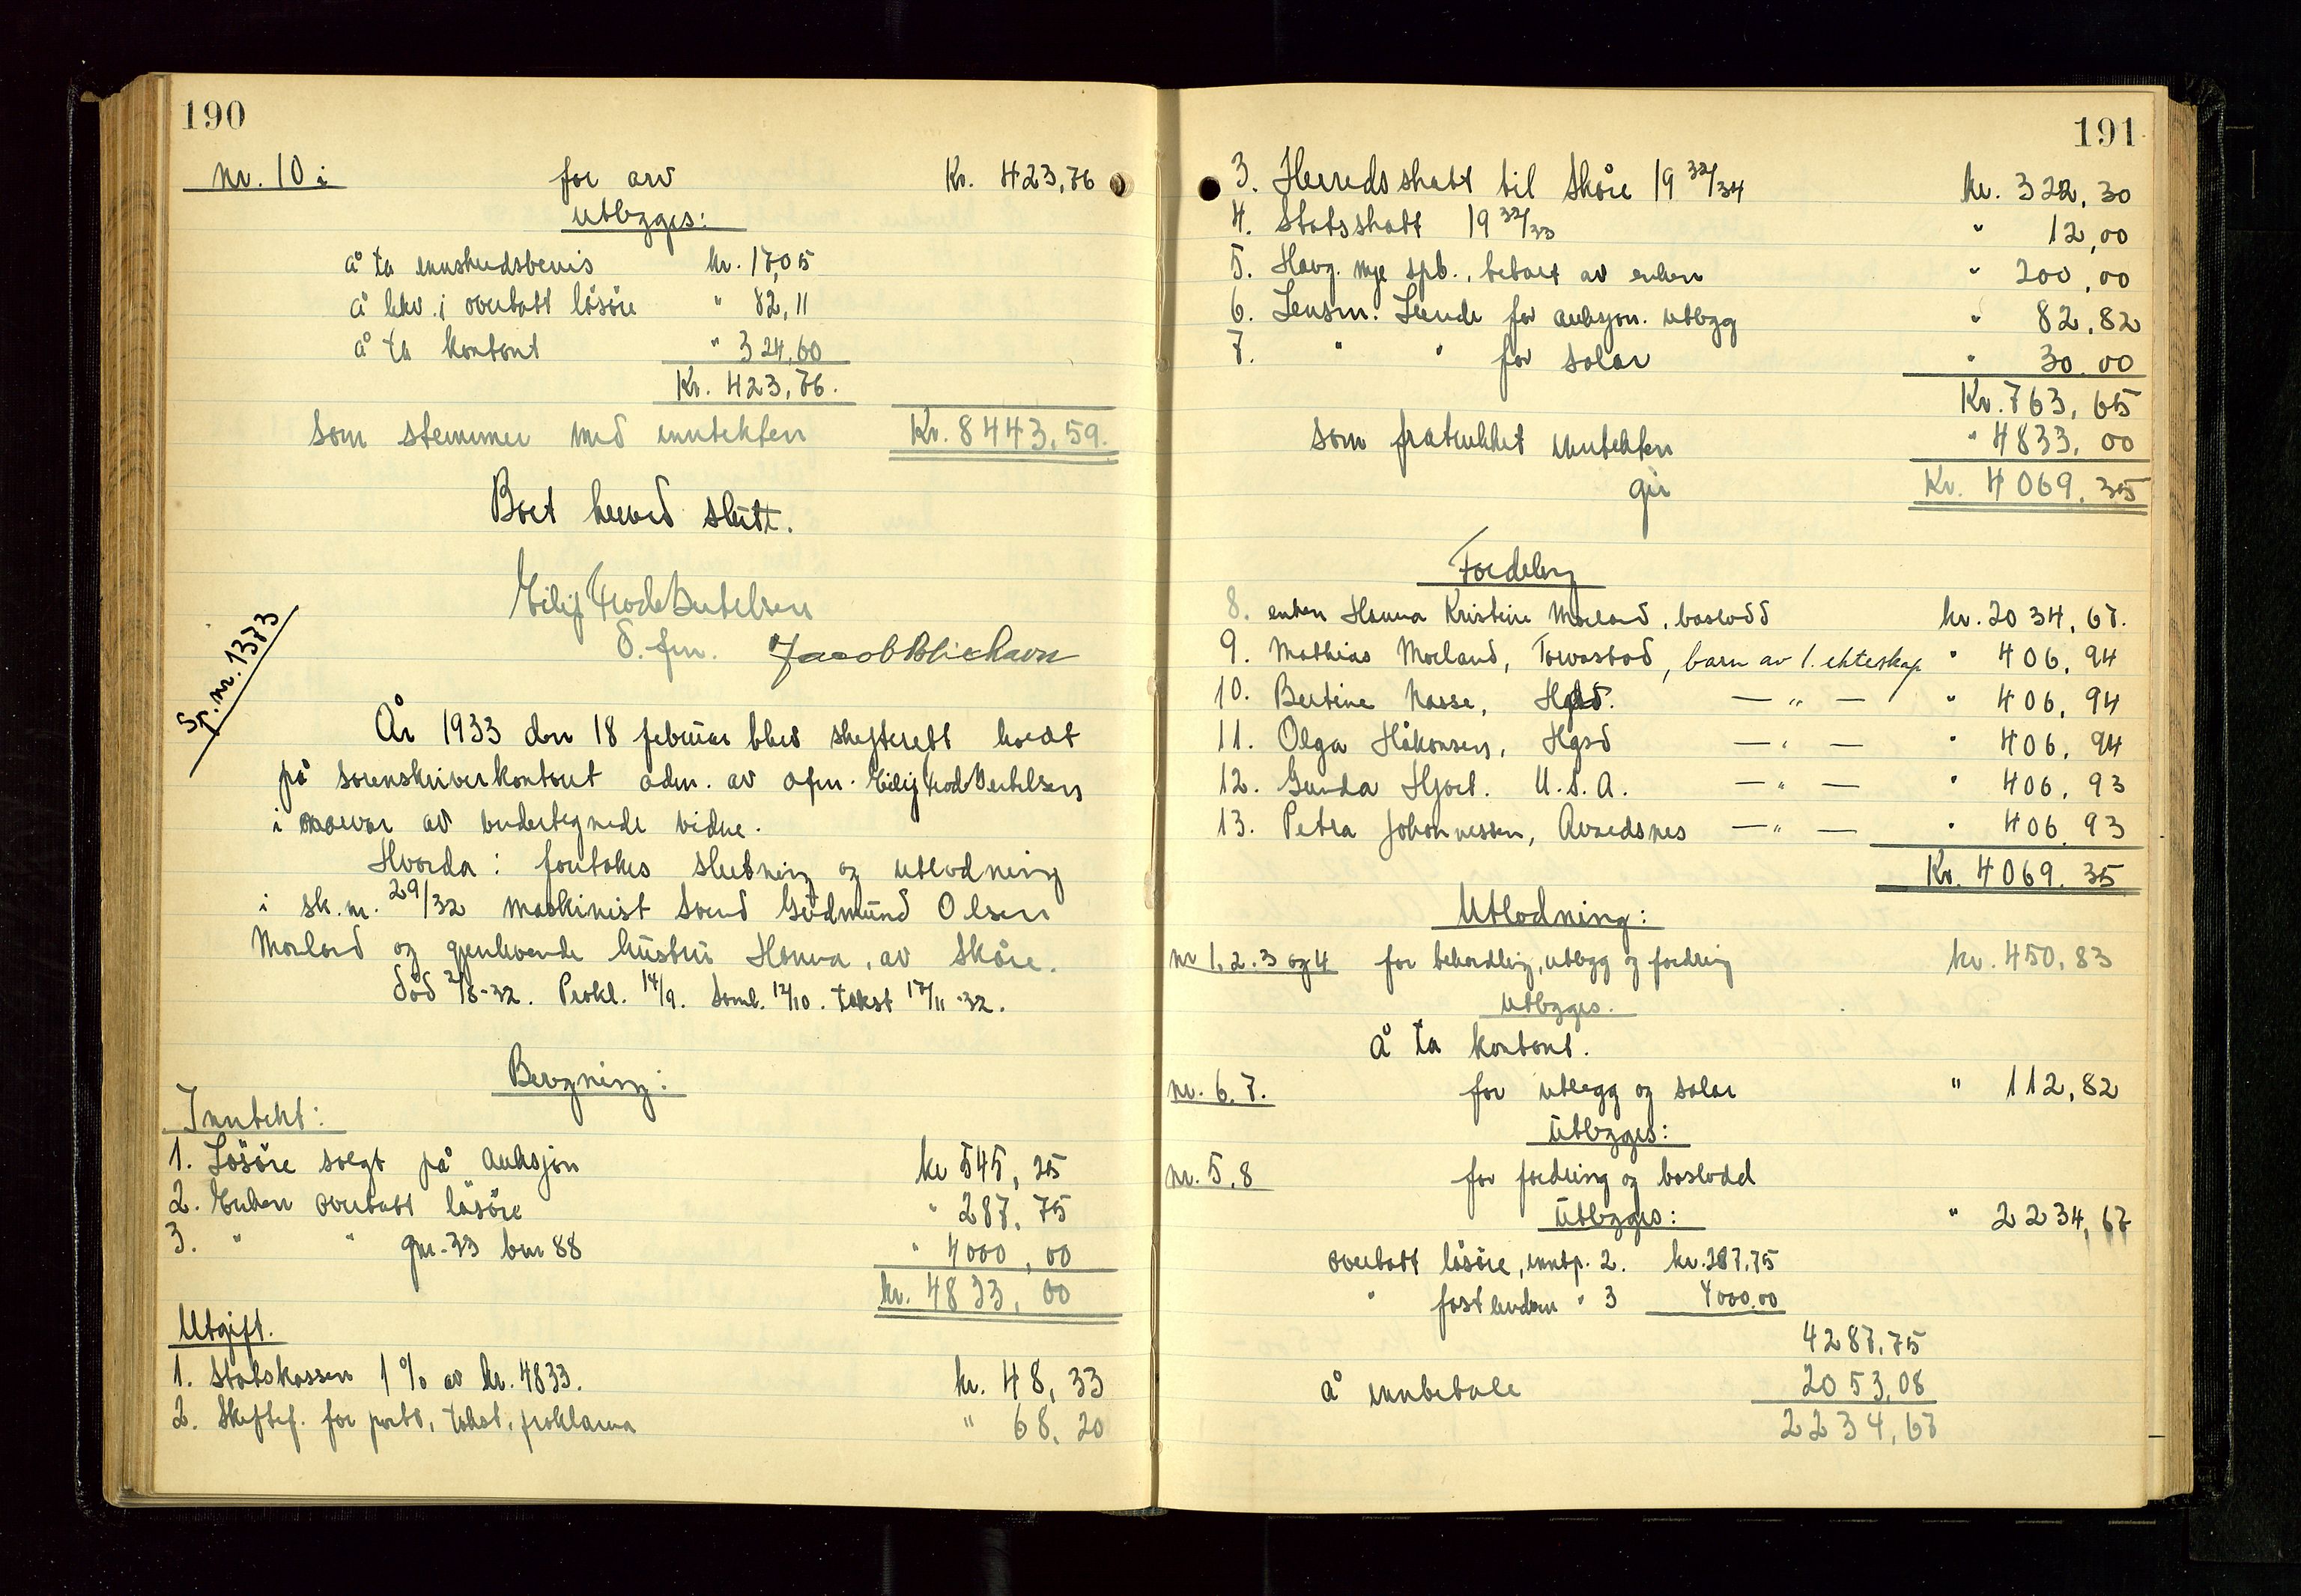 190
nr. 10 i for arv Kr. 423,76
Utlegges:
å ta innskudsbevis kr. 17,05
å likv. i overtatt lösöre " 82,11
å ta kontant " 324,60
Kr. 423,76.
som stemmer med inntekten Kr. 8443,59.
Boet herved slutt.
Eilif Frode Bertelsen
d. fm. Jacob Blichavn
Sp. nr. 1373
År 1933 den 18 februar blev skifterett holdt
på sorenskriverkontoret adm. av dfm. Eilif Frode Bertelsen
i nærvær av undertegnede vidne.
Hvorda: foretokes slutning og utlodning
i sk. nr. 29/32 maskinist Svend Gudmund Olsen
Moeland og gjenlevende hustru Hanna, av Skåre.
död 2/8-32. Prokl. 14/9. Saml. 12/10. takst 17/11-32.
Beregning:
Inntekt:
1. Lösöre solgt på auksjon kr 545, 25
2. Enken overtatt lösöre " 287, 75
3. " " gnr. 33 bnr 88 " 4000, 00
kr. 4833, 00
Utgift.
1. Statskassen 1 % av kr. 4833. kr. 48, 33
2. Skiftef. for porto, takst, proklama " 68, 20
191
3. Herredsskatt til Skåre 19 32/34 kr. 322, 30
4. Statsskatt 19 32/33 " 12,00
5. Haug. nye spb., betalt av enken " 200,00
6. Lensm. Lunde for auksjon. utlegg " 82,82
7. " " for salær " 30.00
Kr. 763, 65
som fratrukket inntekten " 4833, 00
gir Kr. 4069, 35
Fordeling
8. enken Hanna Kristine Moeland, boslodd kr. 2034, 67.
9. Mathias Moeland, Torvastad, barn av 1. ekteskap " 406, 94
10. Bertine Nasse, Hgsd. — " — " 406, 94
11. Olga Håkonsen, Hgsd — " — " 406, 94
12. Gunda Hjort. U.S.A. — " — " 406, 93
13. Petra Johannessen, Avaldsnes — " — " 406, 93
Kr. 4069, 35
Utlodning:
nr 1, 2. 3 og 4 for behandling, utlegg og fordring kr. 450, 83
Utlegges.
å ta kontant.
nr. 6. 7. for utlegg og salær " 112,82
Utlegges:
nr. 5, 8 for fordring og boslodd
Utlegges: " 2234, 67
overtatt lösöre, inntp. 2. kr. 287.75
" fast eiendom " 3 4000.00
4287,75
å innbetale 2053,08
2234,67